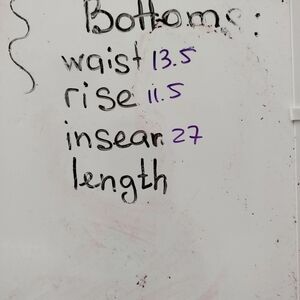 Bottoms:
waist 13.5
rise 11.5
insean 27
length